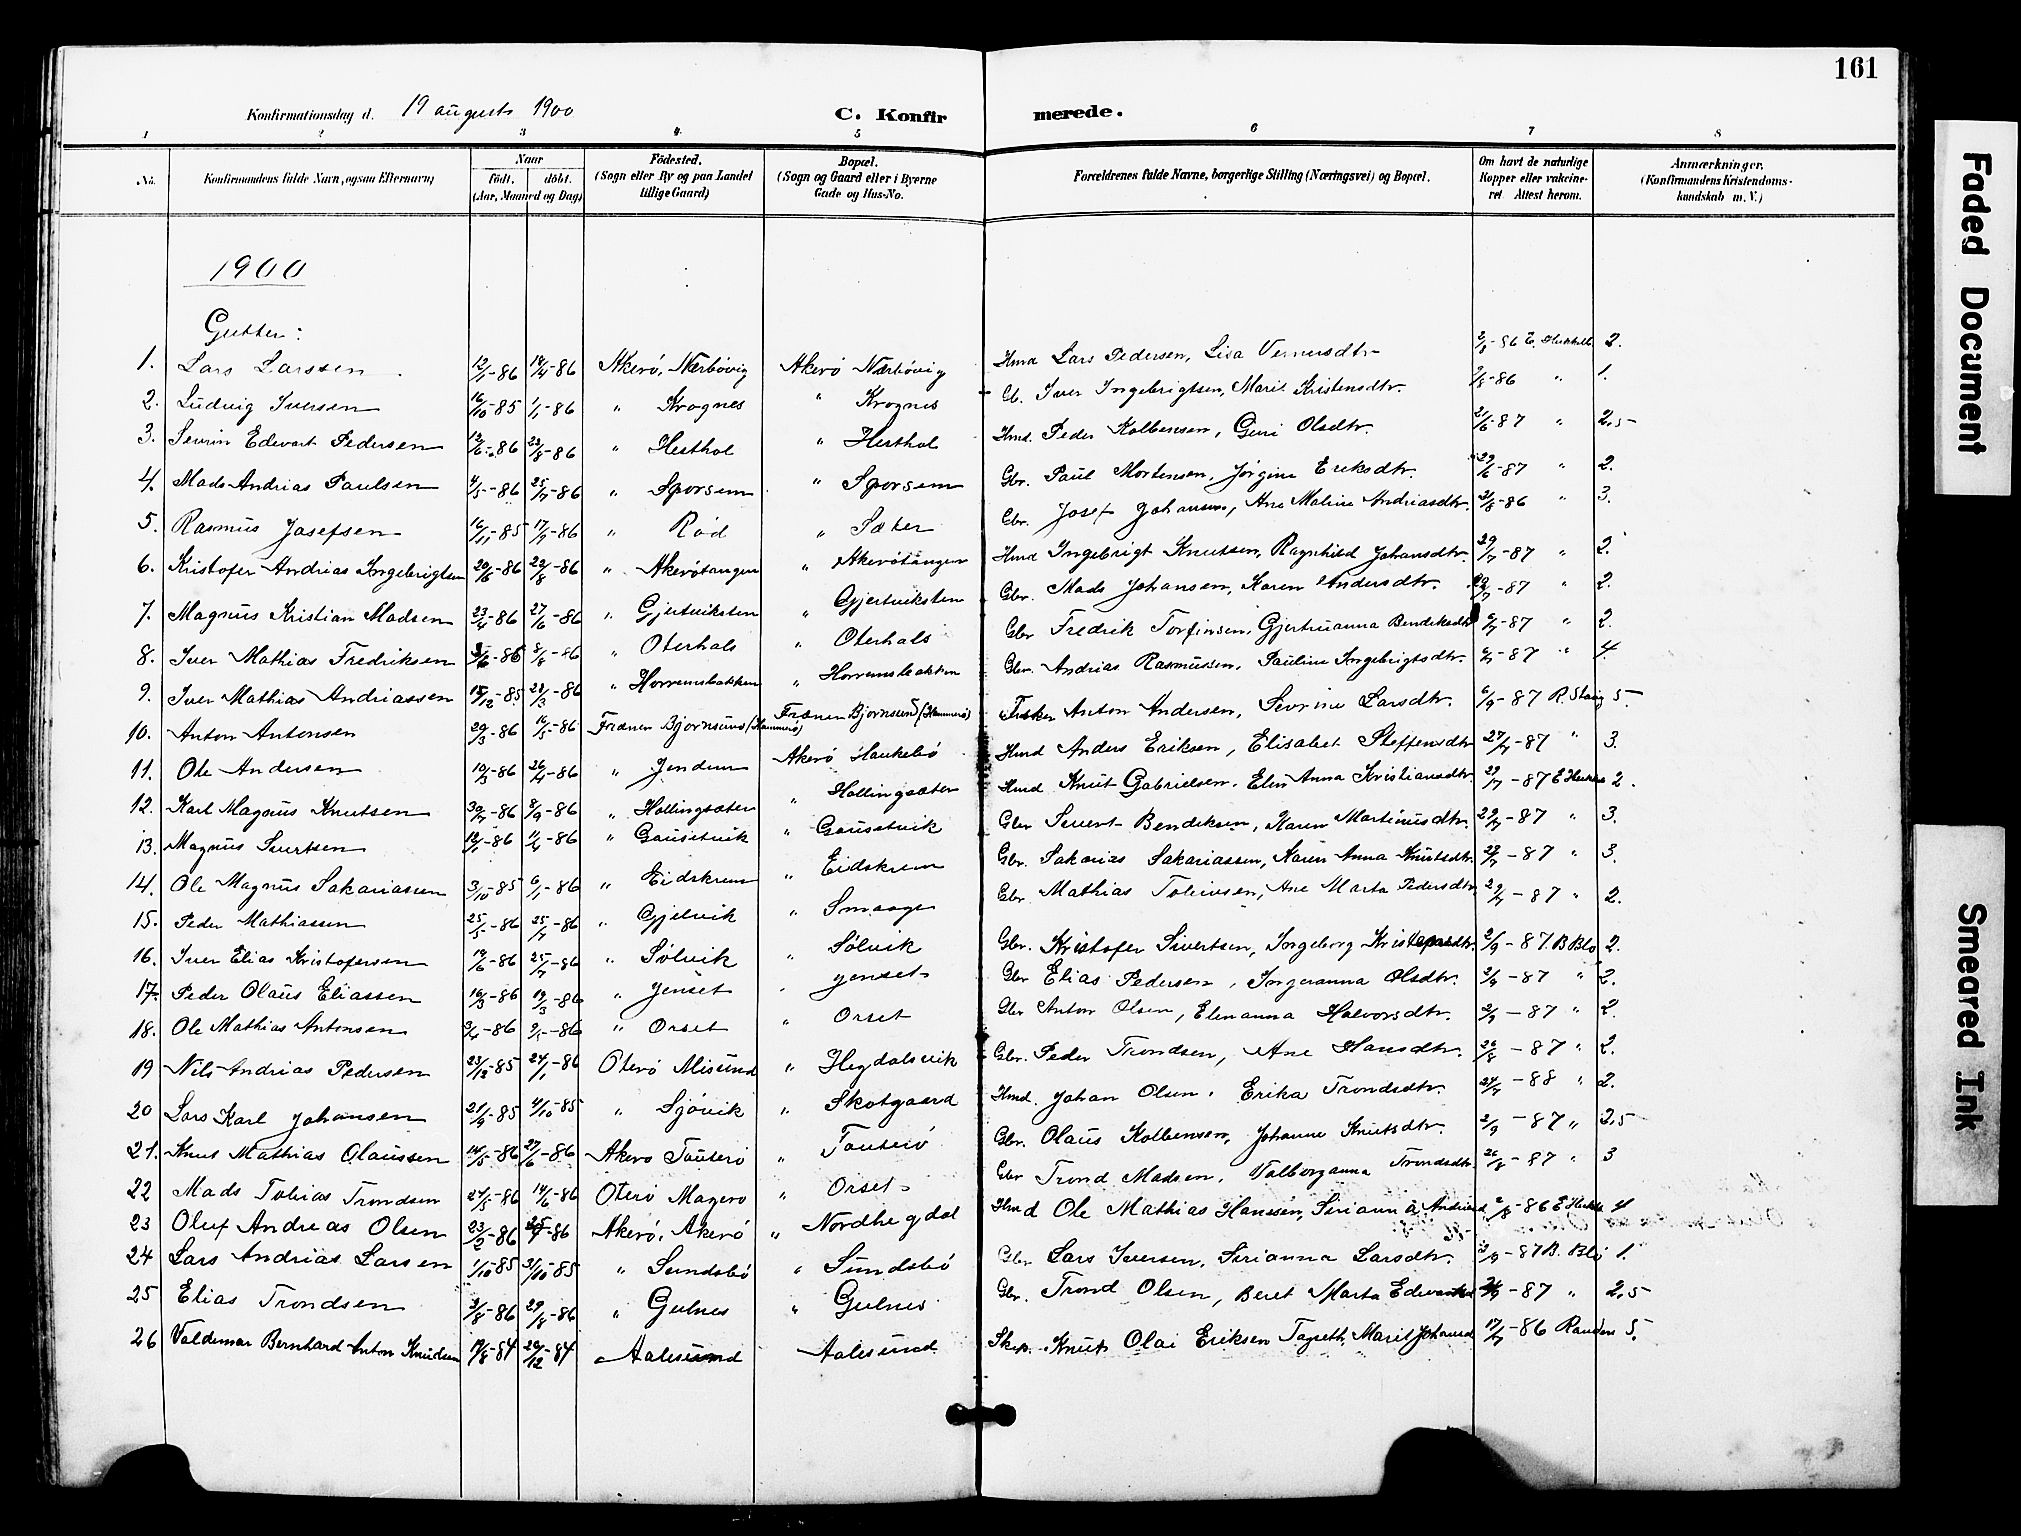 161
Konfirmationsdag d. 19 augusts 1900 C. Konfirmerede.
1 2 3 4 5 6 7 8
No. Konfirmandens fulde Navn, ogsaa Efternavn) Naar födt. döbt. (Aar, Maaned og Dag) Födested. (Sogn eller By og paa Landet tillige Gaard) Bopæl. (Sogn og Gaard eller i Byerne Gade og Hus-No. Forældrenes fulde Navne, borgerlige Stilling (Næringsvei) og Bopæl. Om havt de naturlige Kopper eller vakcineret Attest herom. Anmærkninger. (Konfirmandens Kristendomskundskab m. V.)
1900
Gutter:
1. Lars Larssen 12/1-86 14/4-86 Akerö, Nærbövig Akerö Nærbövig Hmd Lars Pedersen, Lisa Vernersdtr 2/8-86 2.
2. Ludvig Iversen 16/10-85 1/1-86 " Krognes " Krognes Gb. Iver Ingebrigtsen, Marit Kristensdtr. 2/8-86 " 1.
3. Sevrin Edevart Pedersen 86 22/8-86 " Hesthol " Hesthol Hmd. Peder Kolbensen, Guri Olsdtr. 21/6-87 " 2,5
4. Mads Andrias Paulsen 4/5-86 25/7-86 " Sporsem " Sporsem Gbr. Paul Mortensen, Jörgine Eriksdtr. 29/6-87 " 2.
5. Rasmus Josefsen 16/11-85 17/7-86 " Röd " Sæter Gbr. Josef Johansen, Ane Maline Andriasdtr. 2/8-86 " 3.
6. Kristofer Andrias Ingebrigtsen 20/6-86 22/8-86 " Akerötangen " Akerötangen Hmd Ingebrigt Knutsen, Ragnhild Johansdtr. 29/7-87 " 2.
7. Magnus Kristian Madsen 23/4-86 27/6-86 " Gjertviksten " Gjertviksten Gbr. Mads Johansen, Karen Andersdtr. -87 " 2.
8. Iver Mathias Fredriksen 86 8/8-86 " Oterhals " Oterhals Gbr Fredrik Torfinsen, Gjertruanna Bendiksdtr -87 " 2.
9. Iver Mathias Andriassen 15/12-85 28/3-86 " Horremsbakken " Horremsbakken Gbr. Andrias Rasmussen, Pauline Ingebrigtsdtr. -87 " 4.
10. Anton Antonsen 29/3-86 16/5-86 Frænen Bjornsund (Hammerö) Frænen Bjornsund (Hammerö) Fisker Anton Andersen, Sevrine Larsdtr. 6/9-87 R. Stavig 5
11. Ole Andersen 10/3-86 26/4-86 " Jendem Akerö Haukebö Hmd Anders Eriksen, Elisabet Steffensdtr 27/7-87 " 3.
12. Karl Magnus Knutsen 30/7-86 5/9-86 " Hollingsæter " Hollingsæter Hmd Knut Gabrielsen, Elen Anna Kristiansdtr. 29/7-87 2.
13. Magnus Sivertsen 86 11/4-86 " Gausetvik " Gausetvik Gbr Sivert Bendiksen, Karen Martinusdtr. 29/7-87 " 3.
14. Ole Magnus Sakariassen 3/10-85 6/1-86 " Eidskrem " Eidskrem Gbr. Sakarias Sakariassen, Karen Anna Knutsdtr. 29/7-87 " 3.
15. Peder Mathiassen 25/5-86 25/7-86 " Gjelvik " Smaage Gbr. Mathias Tobiassen, Ane Marta Pedersdtr. 29/7-87 " 2.
16. Iver Elias Kristofersen 19/6-86 25/7-86 " Sölvik " Sölvik Gbr. Kristofer Sivertsen, Ingeborg Kristofersdtr. 2/9-87. B. Blö 2.
17. Peder Olaus Eliassen 16/3-86 19/3-86 " Jenset " Jenset Gbr Elias Pedersen, Ingeranna Olsdtr. 2/9-87 " 2.
18. Ole Mathias Antonsen 3/4-86 9/5-86 " Orset " Orset Gbr Anton Olsen, Elenanna Halvorsdtr. 2/9-87 " 2.
19 Nils Andrias Pedersen 23/12-85 24/1-86 Oterö Misund " Hegdalsvik Gbr. Peder Trondsen, Ane Hansdtr. 26/8-87 " 2.
20 Lars Karl Johansen 21/9-85 4/10-85 " Sjövik " Skotgaard Hmd. Johan Olsen, Erika Trondsdtr. 24/7-88 " 2.
21. Knut Mathias Olaussen 16/5-86 27/6-86 Akero Tauterö " Tauterö Gbr. Olaus Kolbensen, Johanne Knutsdtr. 2/9-87 " 2,5
22 Mads Tobias Trondsen 24/5-86 14/6-86 Oterö Magero " Orset Gbr Trond Madsen, Valborganna Trondsdtr. 26/8-87 " 3
23 Oluf Andreas Olsen 23/2-86 86 Akerö, Akerö " Nordhegdal Hmd Ole Mathias Hanssen, Serianna Andriasd. 2/8-86 4
24 Lars Andrias Larsen 1/10-85 31/10-85 " Sundsbö " Sundsbö Gbr Lars Iversen, Serianna Larsdtr. 2/9-87 B. Blö 1.
25 Elias Trondsen 3/8-86 29/8-86 " Gulnes " Gulnes Gbr. Trond Olsen, Beret Marta Edvardsd -87 " 2,5
26 Valdemar Bernhard Anton Knudsen 17/8-84 26/12-84 Aalesund Aalesund Skip. Knut Olai Eriksen Marit Johansd 17/7-86 5.
Faded Document
Smeared Ink